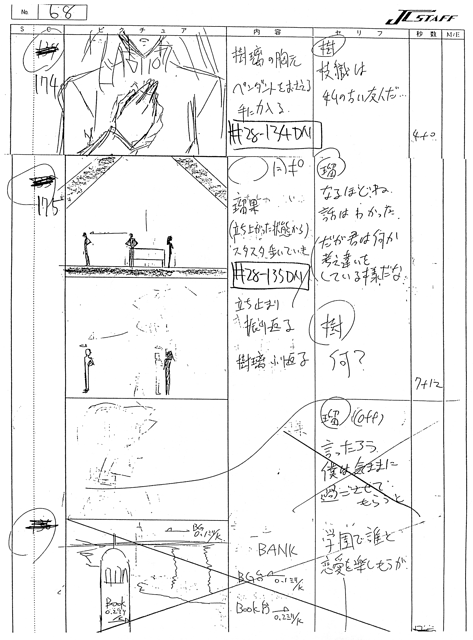 No. 68
J.C.STAFF
S
C
ピクチュア
内容
セリフ
秒数
M/E
174
樹璃の胸元
ペンダントをおさえる
手に力入る
#28-134DN
樹
枝織は
4+0
175
瑠果
(立ち上がった状態から)
スタスタ歩いていき
#28-135DN
立ち止まり
振り返る
樹璃小返る
瑠
なるほどね
話はわかった
だが君は何か
考え違いを
している様だな
樹
何?
7+12
瑠 (off)
言ったろう
僕は気ままに
過ごさせて
もらうと
BG
0.139/k
Book
BANK
BG
Book
学園で誰と
恋愛を楽しもうが